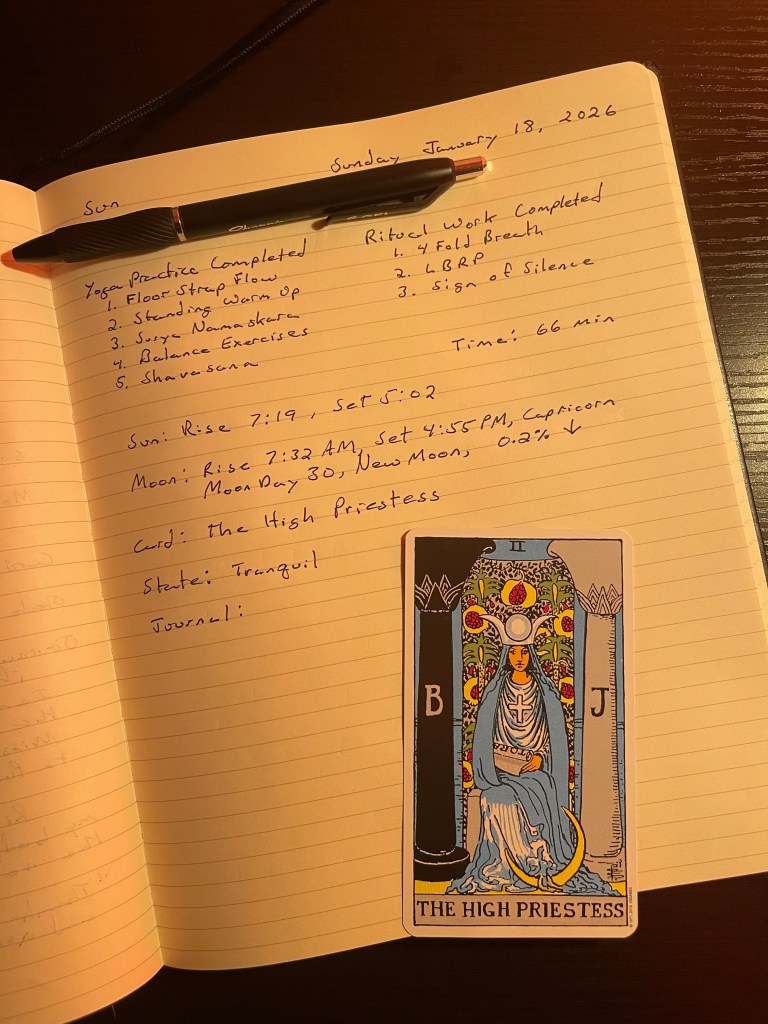 Sunday January 18, 2026
Sun
Yoga Practice Completed
1. Floor Strap Flow
2. Standing Warm Up
3. Surya Namaskara
4. Balance Exercises
5. Shavasana
Ritual Work Completed
1. 4 Fold Breath
2. LBRP
3. Sign of Silence
Time: 66 min
Sun: Rise 7:19, Set 5:02
Moon: Rise 7:32 AM, Set 4:55 PM, Capricorn
Moon Day 30, New Moon, 0.2% ↓
Card: The High Priestess
State: Tranquil
Journal:
II
B
J
TORA
THE HIGH PRIESTESS